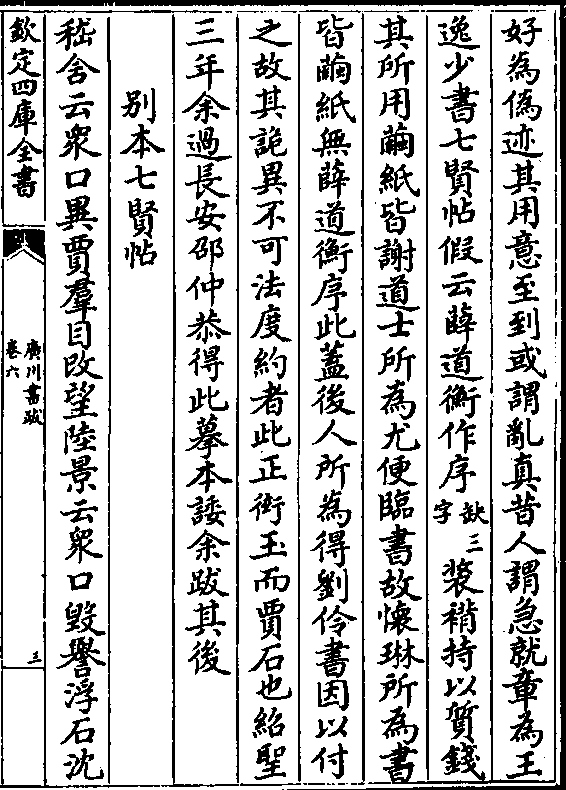 好為偽迹其用意至到或謂亂真昔人謂急就章為王
逸少書七賢帖假云薛道衡作序缺三字裝褙持以質錢
其所用繭紙皆謝道士所為尤便臨書故懷琳所為書
皆繭紙無薛道衡序此蓋後人所為得劉伶書因以付
之故其詭異不可法度約者此正衒玉而賈石也紹聖
三年余過長安邵仲恭得此摹本諉余跋其後
別本七賢帖
嵇含云衆口異賈羣目改望陸景云衆口毀譽浮石沈
欽定四庫全書
廣川書跋
卷六
三